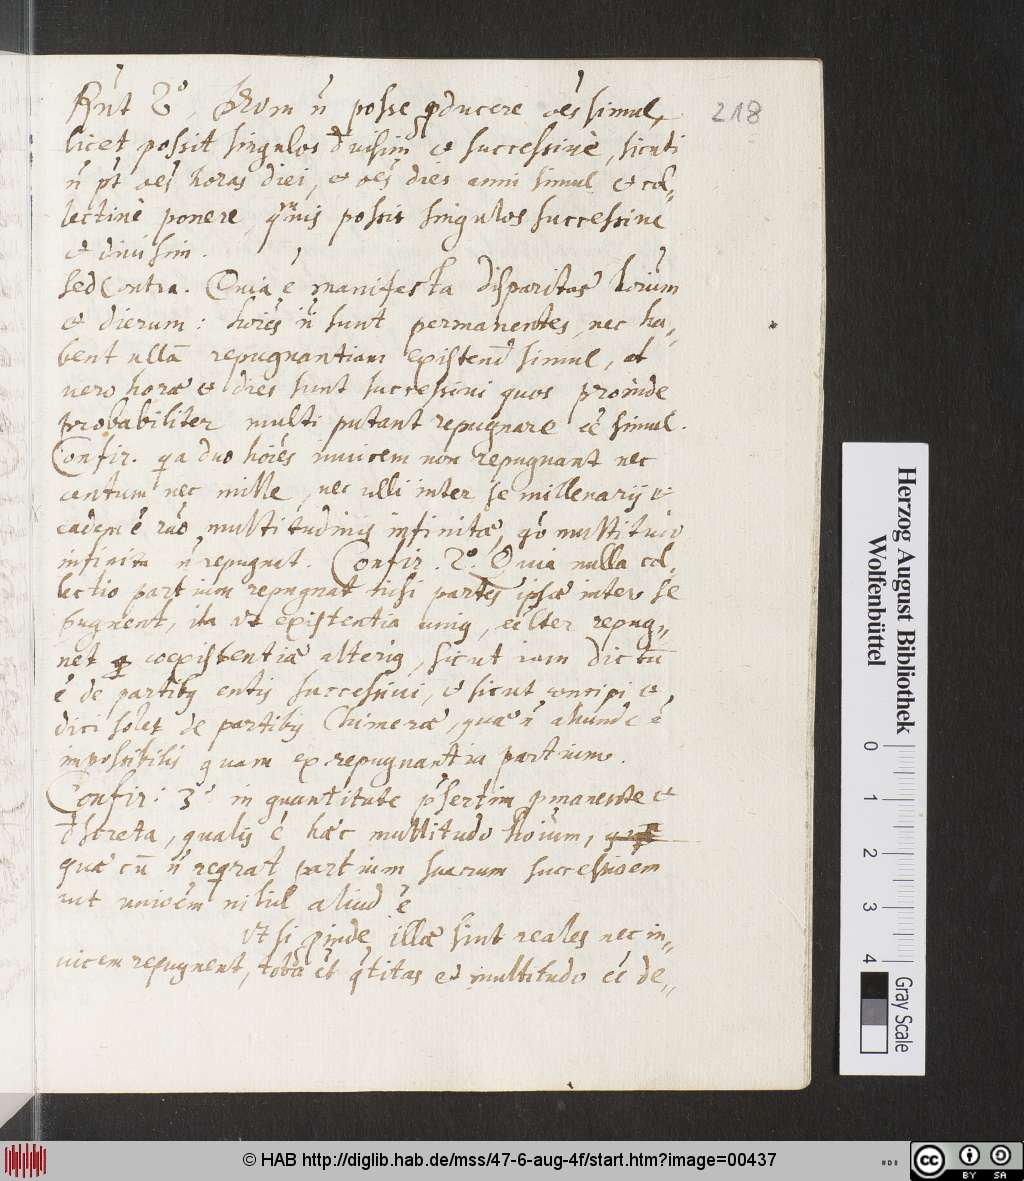 Rñt 2°, Deum ñ posse pducere oẽs simul,
218
licet possit singulos divisim et successivè, sicuti
ñ pt̃ oẽs horas diei, et oẽs dies anni simul et col-
lectivè ponere, qmvis possit singulos successive
et divisim.
Sed Contra. Quia ẽ manifesta disparitas hoĩum
et dierum: hoĩes ñ sunt permanentes, nec ha-
bent ullã repugnantiam existendi simul, at
vero horæ et dies sunt successivi quos proinde
probabiliter multi putant repugnare eẽ simul.
Confir. qa duo hoĩes invicem non repugnant nec
centum nec mille, nec ulli inter se millenarij et
eadem ẽ rão multitudinis infinitæ, go multitudo
infinita ñ repugnat. Confir. 2° Quia nulla col-
lectio partium repugnat nisi partes ipsæ inter se
pugnent, ita ut existentia unig, eãlter repug-
net coexistentiæ alterig, sicut iam dictũ
ẽ de partibg entis successivi, et sicut concipi et
dici solet de partibg Chimeræ, quæ ñ aliunde ẽ
impossibilis quam ex repugnantia partium.
Confir: 3° in quantitate psertim pmanente et
discreta, qualis ẽ hæc multitudo hoĩum,
quæ cũ ñ reqrat partium suarum successioem
aut unioẽm nihil aliud ẽ
ut si pinde illæ sint reales nec in-
vicem repugnent, et qtitas et multitudo eẽ de-
Herzog August Bibliothek
Wolfenbüttel
0 1 2 3 4
Gray Scale
© HAB http://diglib.hab.de/mss/47-6-aug-4f/start.htm?image=00437
cc BY SA